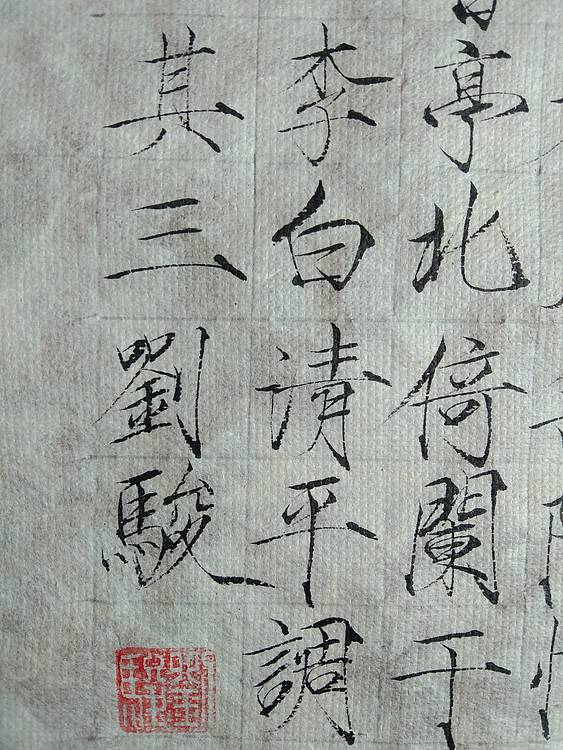 亭北倚闌干
李白清平調
其三劉駿